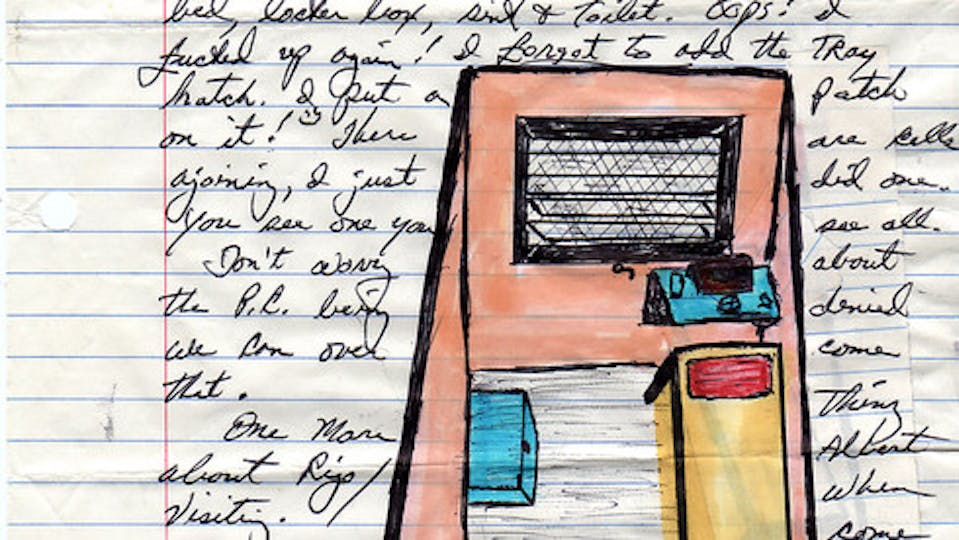 bed, locker box, sink & toilet. Oops! I
fucked up again! I forget to add the Tray
hatch. I put a patch
on it! There are cells
ajoining, I just did one.
You see one you see all.
Don't worry about
the P.C. being denied
we can over come
that.
One More Thing
about Rigo/ Albert
Visiting. When
some